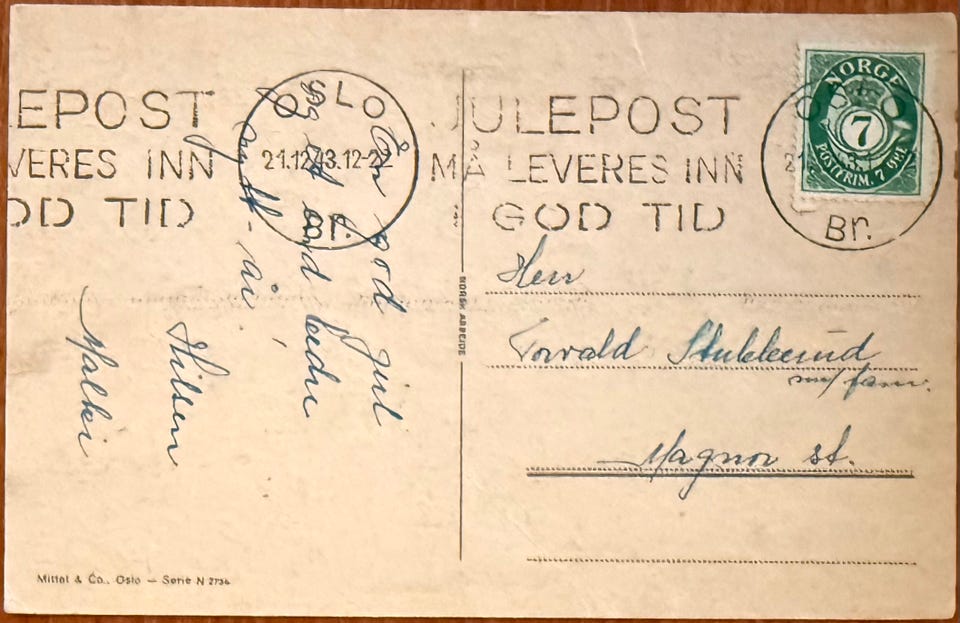 EPOST
VERES INN
OD TID
OSLO
21.12.43.12-22
Br.
JULEPOST
MÅ LEVERES INN
GOD TID
NORGE
7
POSTFRIM. 7 ØRE
Br.
god jul
og et bedre
nytt-år.
Hilsen
Herr
Torvald Stubberud
m/fam.
Magnor st.
NORSK ARBEIDE
Mittet & Co., Oslo — Serie N 2734